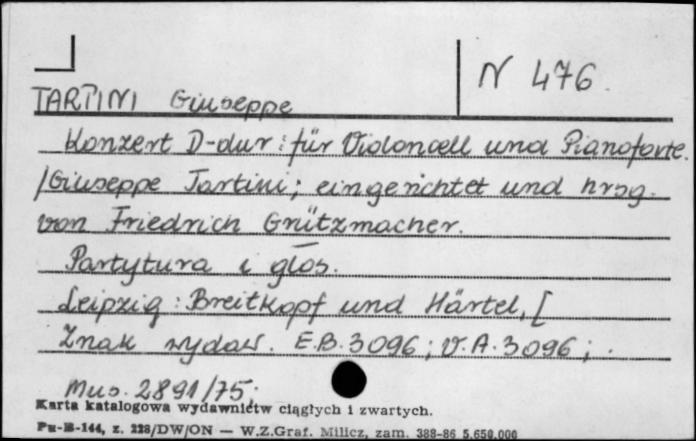 N 476.
TARTINI Giuseppe
Konzert D-dur : für Violoncell und Pianoforte.
/Giuseppe Tartini ; eingerichtet und hrsg.
von Friedrich Grützmacher.
Partytura i głos.
Leipzig : Breitkopf und Härtel, [
Znak wydaw. E.B. 3096 ; V.A. 3096 ; .
Mus. 2891/75;
Karta katalogowa wydawnictw ciągłych i zwartych.
Pu-B-144, z. 228/DW/ON — W.Z.Graf. Milicz, zam. 388-86 5.650.000